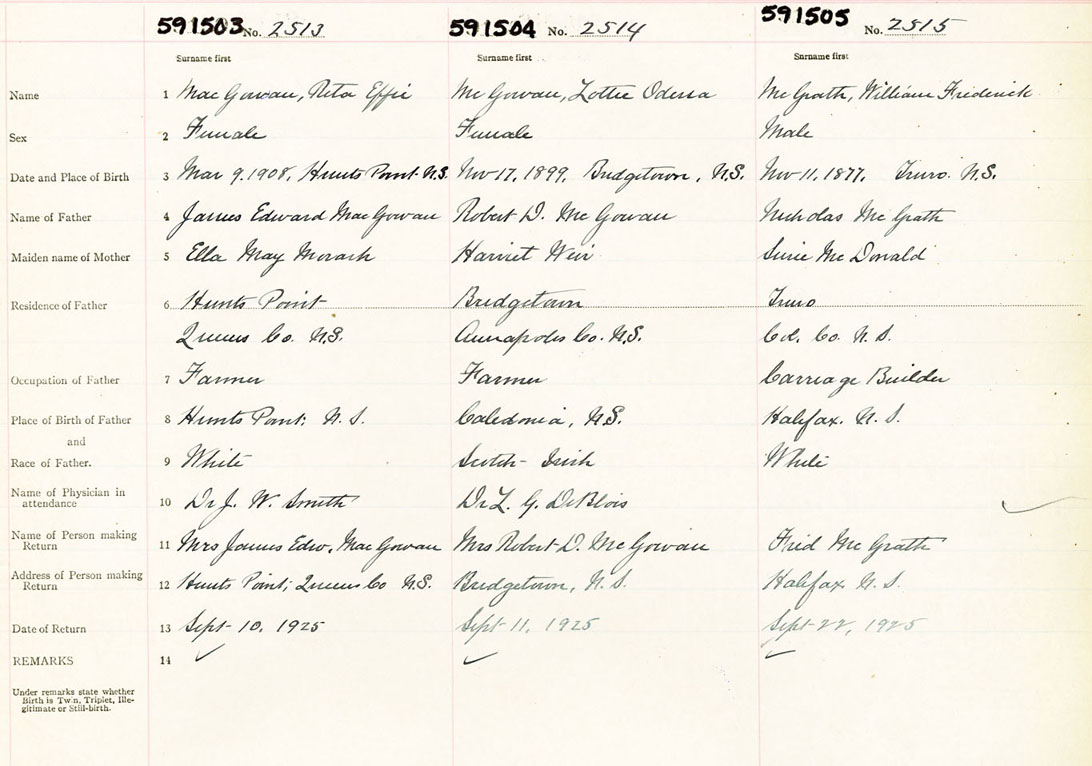 591503 No. 2513 591504 No. 2514 591505 No. 2515
Surname first Surname first Surname first
Name 1 Mac Gowan, Rita Effie Mc Gowan, Lottie Odessa Mc Grath, William Frederick
Sex 2 Female Female Male
Date and Place of Birth 3 Mar 9. 1908, Hunts Point N.S. Nov 17, 1899, Bridgetown, N.S. Nov 11, 1877, Truro. N.S.
Name of Father 4 James Edward Mac Gowan Robert D. Mc Gowan Nicholas Mc Grath
Maiden name of Mother 5 Ella May Morash Harriet Weir Mc Donald
Residence of Father 6 Hunts Point Bridgetown Truro
Queens Co. N.S. Annapolis Co. N.S. Col. Co. N. S.
Occupation of Father 7 Farmer Farmer Carriage Builder
Place of Birth of Father 8 Hunts Point, N. S. Caledonia, N.S. Halifax. N. S.
and
Race of Father. 9 White Scotch-Irish White
Name of Physician in
attendance 10 Dr J. W. Smith Dr L. G. DeBlois
Name of Person making
Return 11 Mrs James Edw. Mac Gowan Mrs Robert D. Mc Gowan Fred Mc Grath
Address of Person making
Return 12 Hunts Point, Queens Co N.S. Bridgetown, N. S. Halifax N. S.
Date of Return 13 Sept 10, 1925 Sept 11, 1925 Sept 22, 1925
REMARKS 14
Under remarks state whether
Birth is Twin, Triplet, Ille-
gitimate or Still-birth.